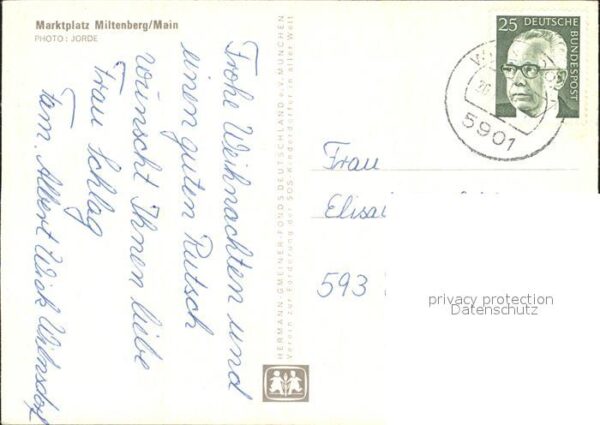 Marktplatz Miltenberg/Main
PHOTO: JORDE
Frohe Weihnachten und
einen guten Rutsch
wünscht Ihnen liebe
Frau Schlag
Fam. Albert Wick Wilnsdorf
HERMANN-GMEINER-FONDS DEUTSCHLAND e.V. MÜNCHEN
Verein zur Förderung der SOS-Kinderdörfer in aller Welt
25 DEUTSCHE
BUNDESPOST
5901
Frau
593
privacy protection
Datenschutz